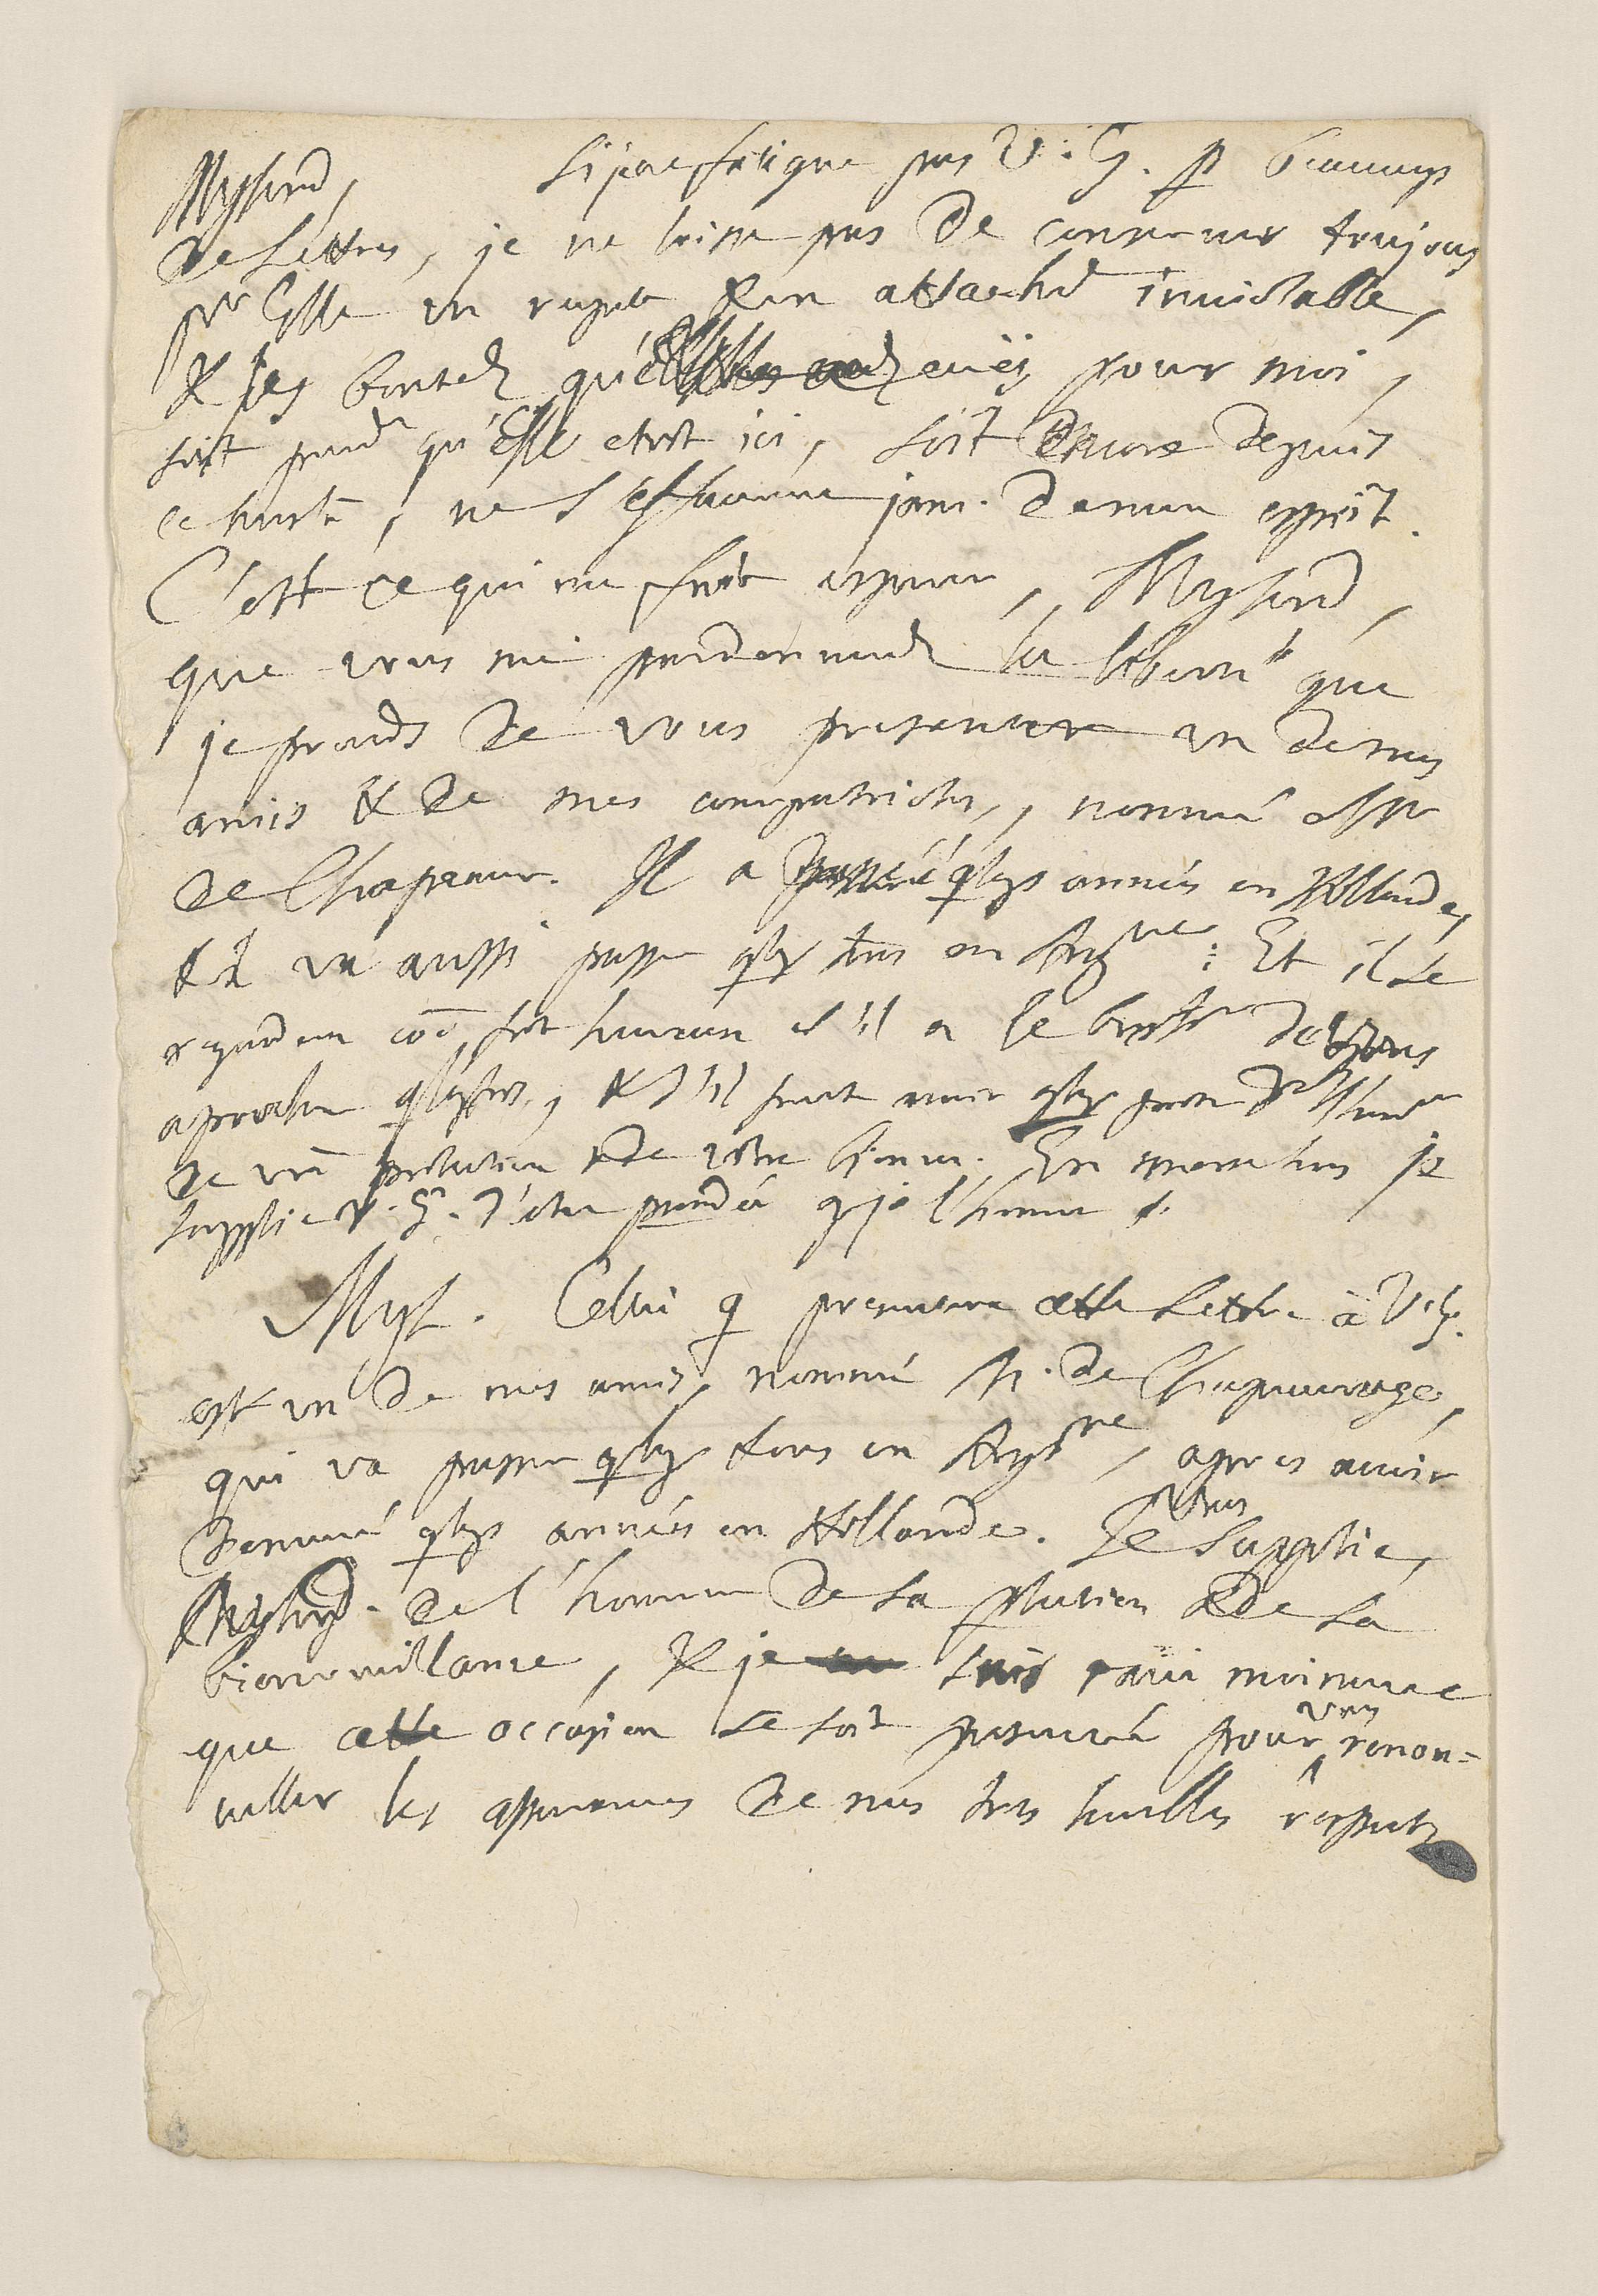 Mylord, Si je ne fatigue pas V. G. p beaucoup
de Lettres, je ne laisse pas de conserver toujours
pr Elle un respect & un attachet inviolable,
& les bontez qu'elle eües pour moi,
soit pendt qu'Elle etoit ici, soit encore depuis
ce tems, ne s'effaceront jam. de mon esprit.
C'est ce qui me fait esperer, Mylord,
que vous me pardonnerez la liberté que
je prends de vous presenter un de mes
amis & de mes compatriotes, nommé Mr
de Chapeaur. Il a passé qlqs années en Hollande,
& il va aussi passer qlq tems en Angre: Et il se
regardera coe fort heureux s'il a le bonhr de vous
aprocher qlqfois, & s'il peut avoir qlq part
de vre protection & de votre bienv. En mon part. je
supplie V. G. d'etre persuadée q j'ai l'honneur d.
Myl. Celui q presentera cette Lettre à V. G.
est un de mes amis, nommé M. de Chapeaurouge,
qui va passer qlq tems en Angre, apres avoir
demeuré qlqs années en Hollande. Je vous supplie,
Mylord. de l'honorer de sa ptection & de sa
bienveillance, & je suis ravi moi meme
que cette occasion se soit presentée pour vous renou=
veller les assurances de mes tres humbles respects